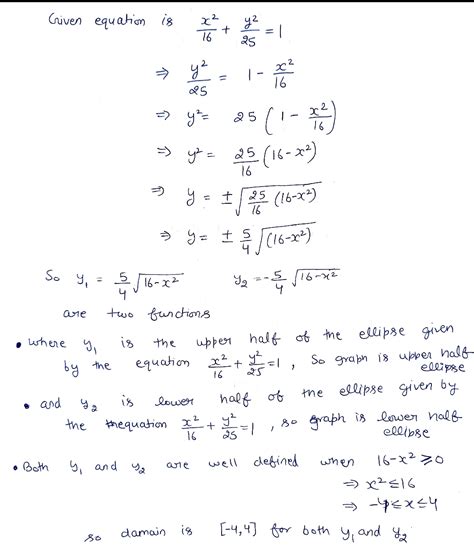 Given equation is x²/16 + y²/25 = 1
⇒ y²/25 = 1 - x²/16
⇒ y² = 25 (1 - x²/16)
⇒ y² = 25/16 (16-x²)
⇒ y = ± √(25/16 (16-x²))
⇒ y = ± 5/4 √(16-x²)
So y₁ = 5/4 √16-x² y₂ = -5/4 √16-x²
are two functions
• where y₁ is the upper half of the ellipse given
by the equation x²/16 + y²/25 = 1, So graph is upper half
ellipse
• and y₂ is lower half of the ellipse given by
the equation x²/16 + y²/25 = 1, so graph is lower half
ellipse
• Both y₁ and y₂ are well defined when 16-x² ≥ 0
⇒ x² ≤ 16
⇒ -4 ≤ x ≤ 4
so damain is [-4,4] for both y₁ and y₂